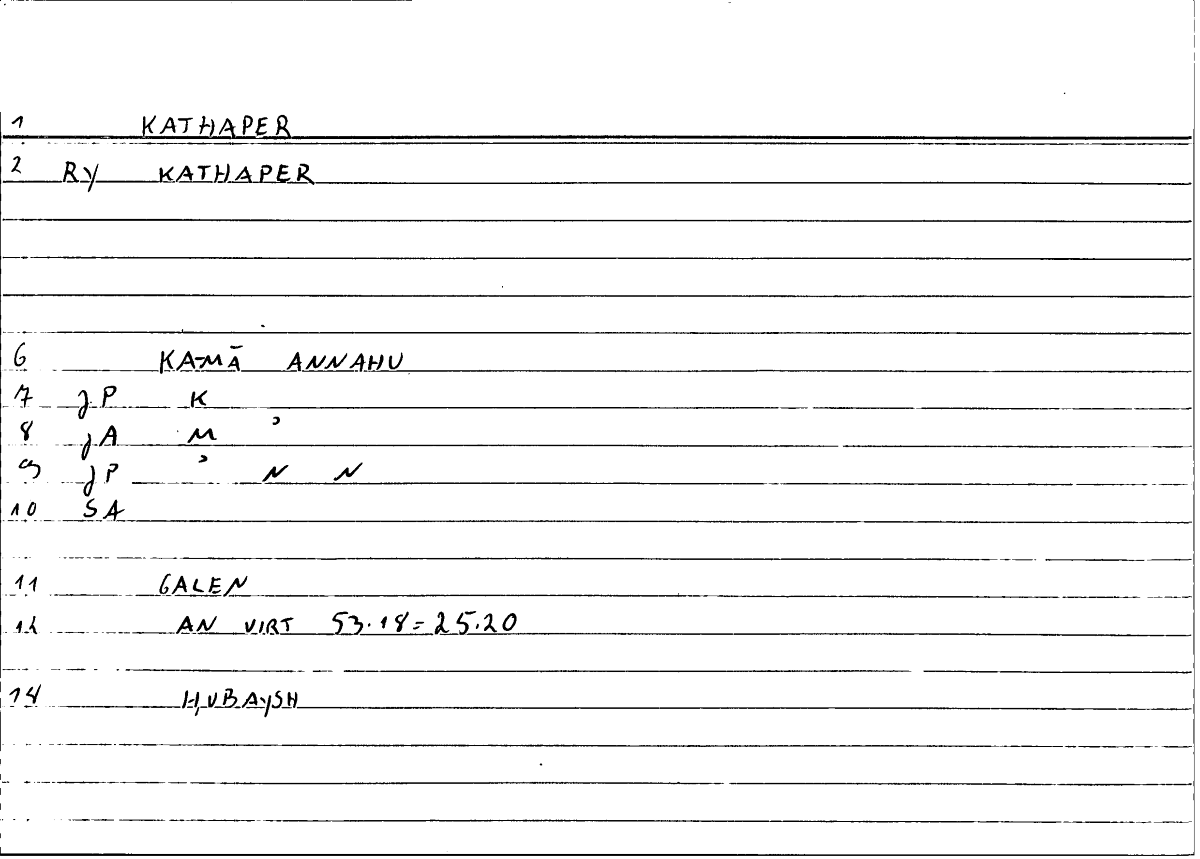 1 KATHAPER
2 RY KATHAPER
6 KAMĀ ANNAHU
7 jP K
8 jA M ʾ
9 jP ʾ N N
10 SA
11 GALEN
12 AN VIRT 53.18=25.20
14 ḤUBAYSH